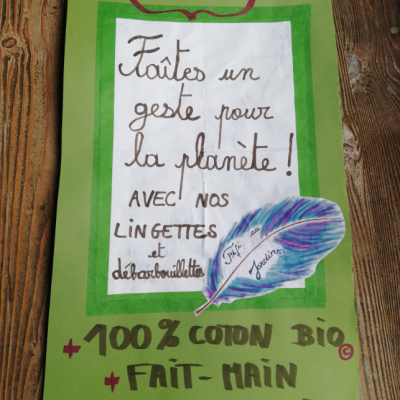 Faîtes un
geste pour
la planète !
AVEC NOS
LINGETTES
et
débarbouillettes
Fifi au
Jardin
+ 100% COTON BIO
+ FAIT-MAIN